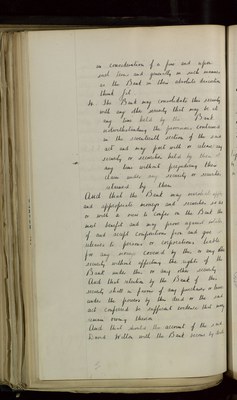 in consideration of a fine and upon
such terms and generally in such manner
as the Bank in their absolute discretion
think fit
The Bank may consolidate this security
with any other security that may be at
any time held by the Bank
notwithstanding the provisions contained
in the seventeenth section of the said
act and may part with or release any
security or securities held by them at
any time without prejudicing their
claim under any security or securities
retained by them
And that the Bank may
and appropriate moneys and securities so as
or with a view to confer on the Bank the
most benefit and may prove against
if and accept compositions from and give
releases to persons or corporations liable
for any moneys covered by this or any other
security without affecting the rights of the
Bank under this or any other security
And that retention by the Bank of this
security shall in favour of any purchaser or lessee
under the powers by this deed or the said
act conferred be sufficient evidence that money
remain owing thereon
And that the account of the said
with the Bank